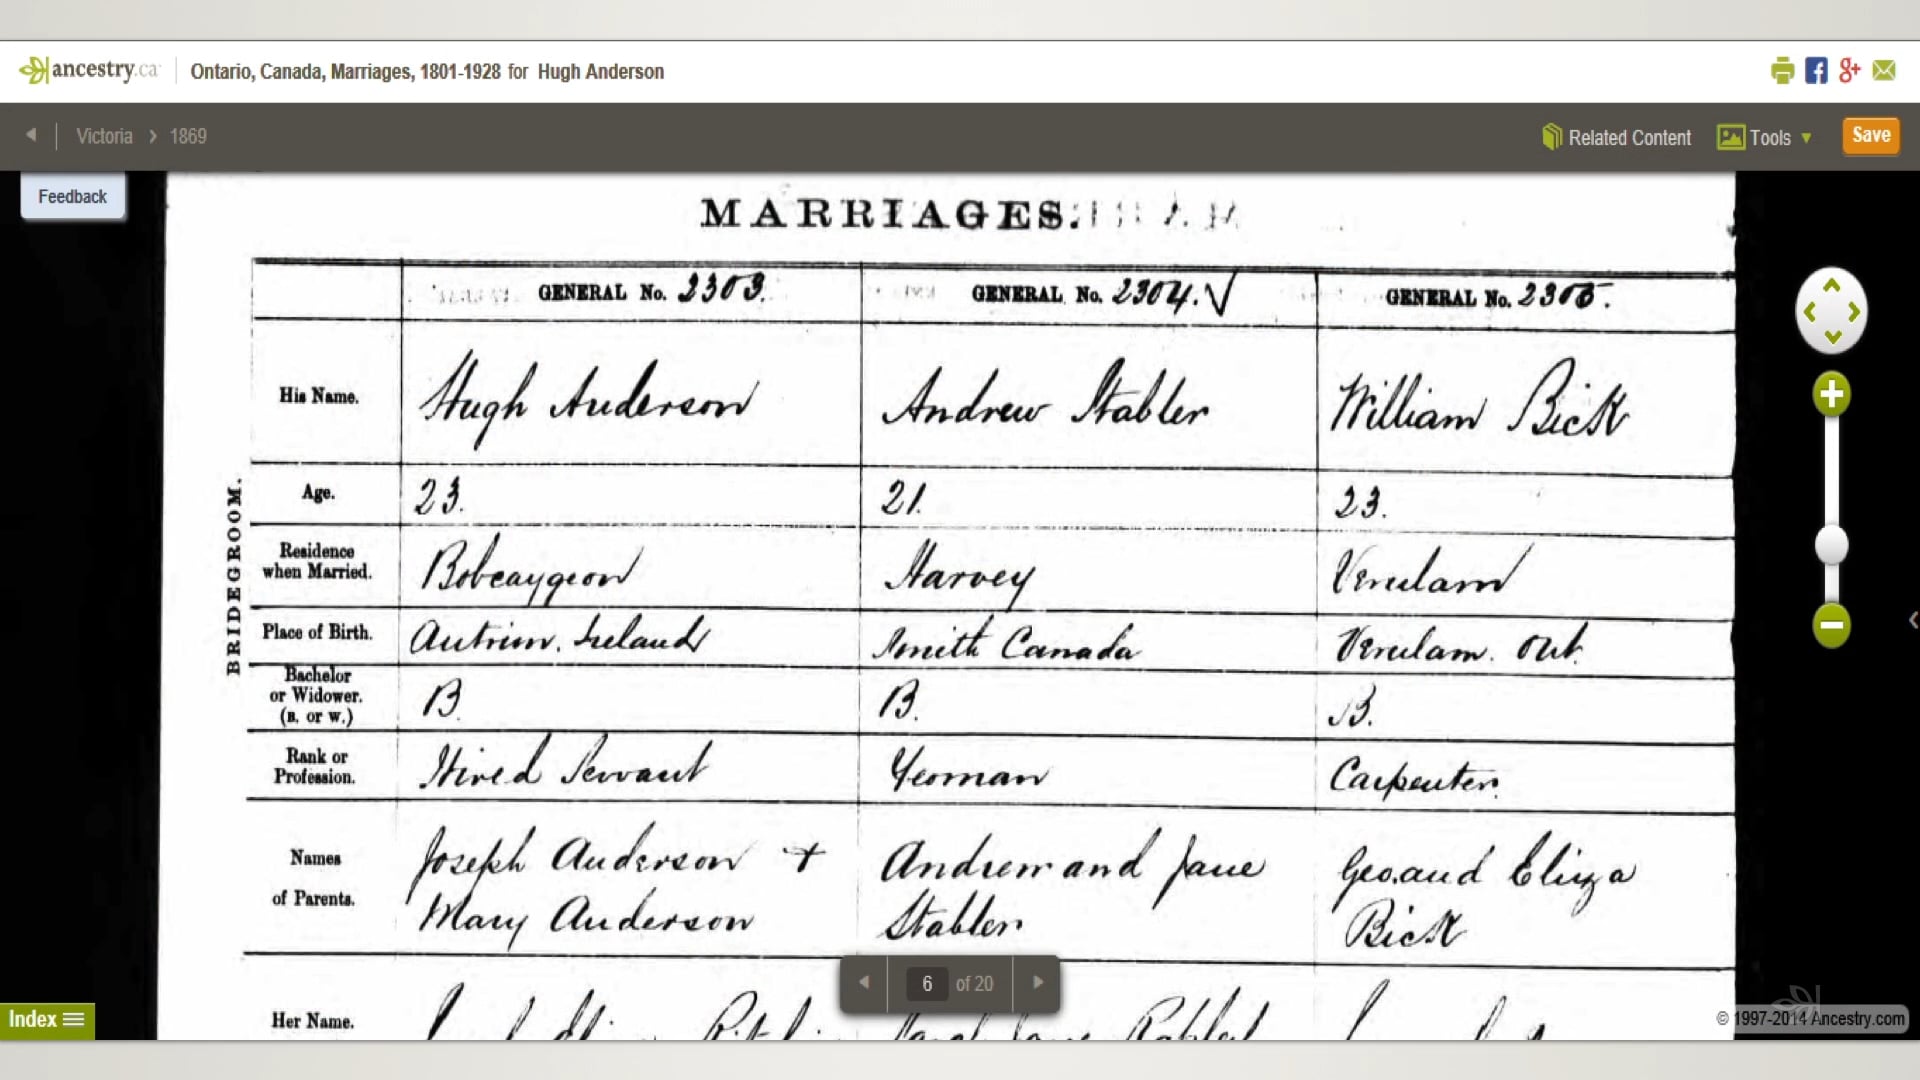 ancestry.ca Ontario, Canada, Marriages, 1801-1928 for Hugh Anderson
Victoria > 1869 Related Content Tools Save
Feedback
MARRIAGES.
GENERAL No. 2303. GENERAL No. 2304. √ GENERAL No. 2305.
BRIDEGROOM.
His Name. Hugh Anderson Andrew Stabler William Bick
Age. 23. 21. 23.
Residence
when Married. Bobcaygeon Harvey Verulam
Place of Birth. Antrim. Ireland Smith Canada Verulam. Ont.
Bachelor
or Widower.
(B. or W.) B. B. B.
Rank or
Profession. Hired Servant Yeoman Carpenter.
Names
of Parents.
Joseph Anderson + Andrew and Jane Geo. and Eliza
Mary Anderson Stabler Bick
Her Name.
6 of 20
Index
© 1997-2014 Ancestry.com